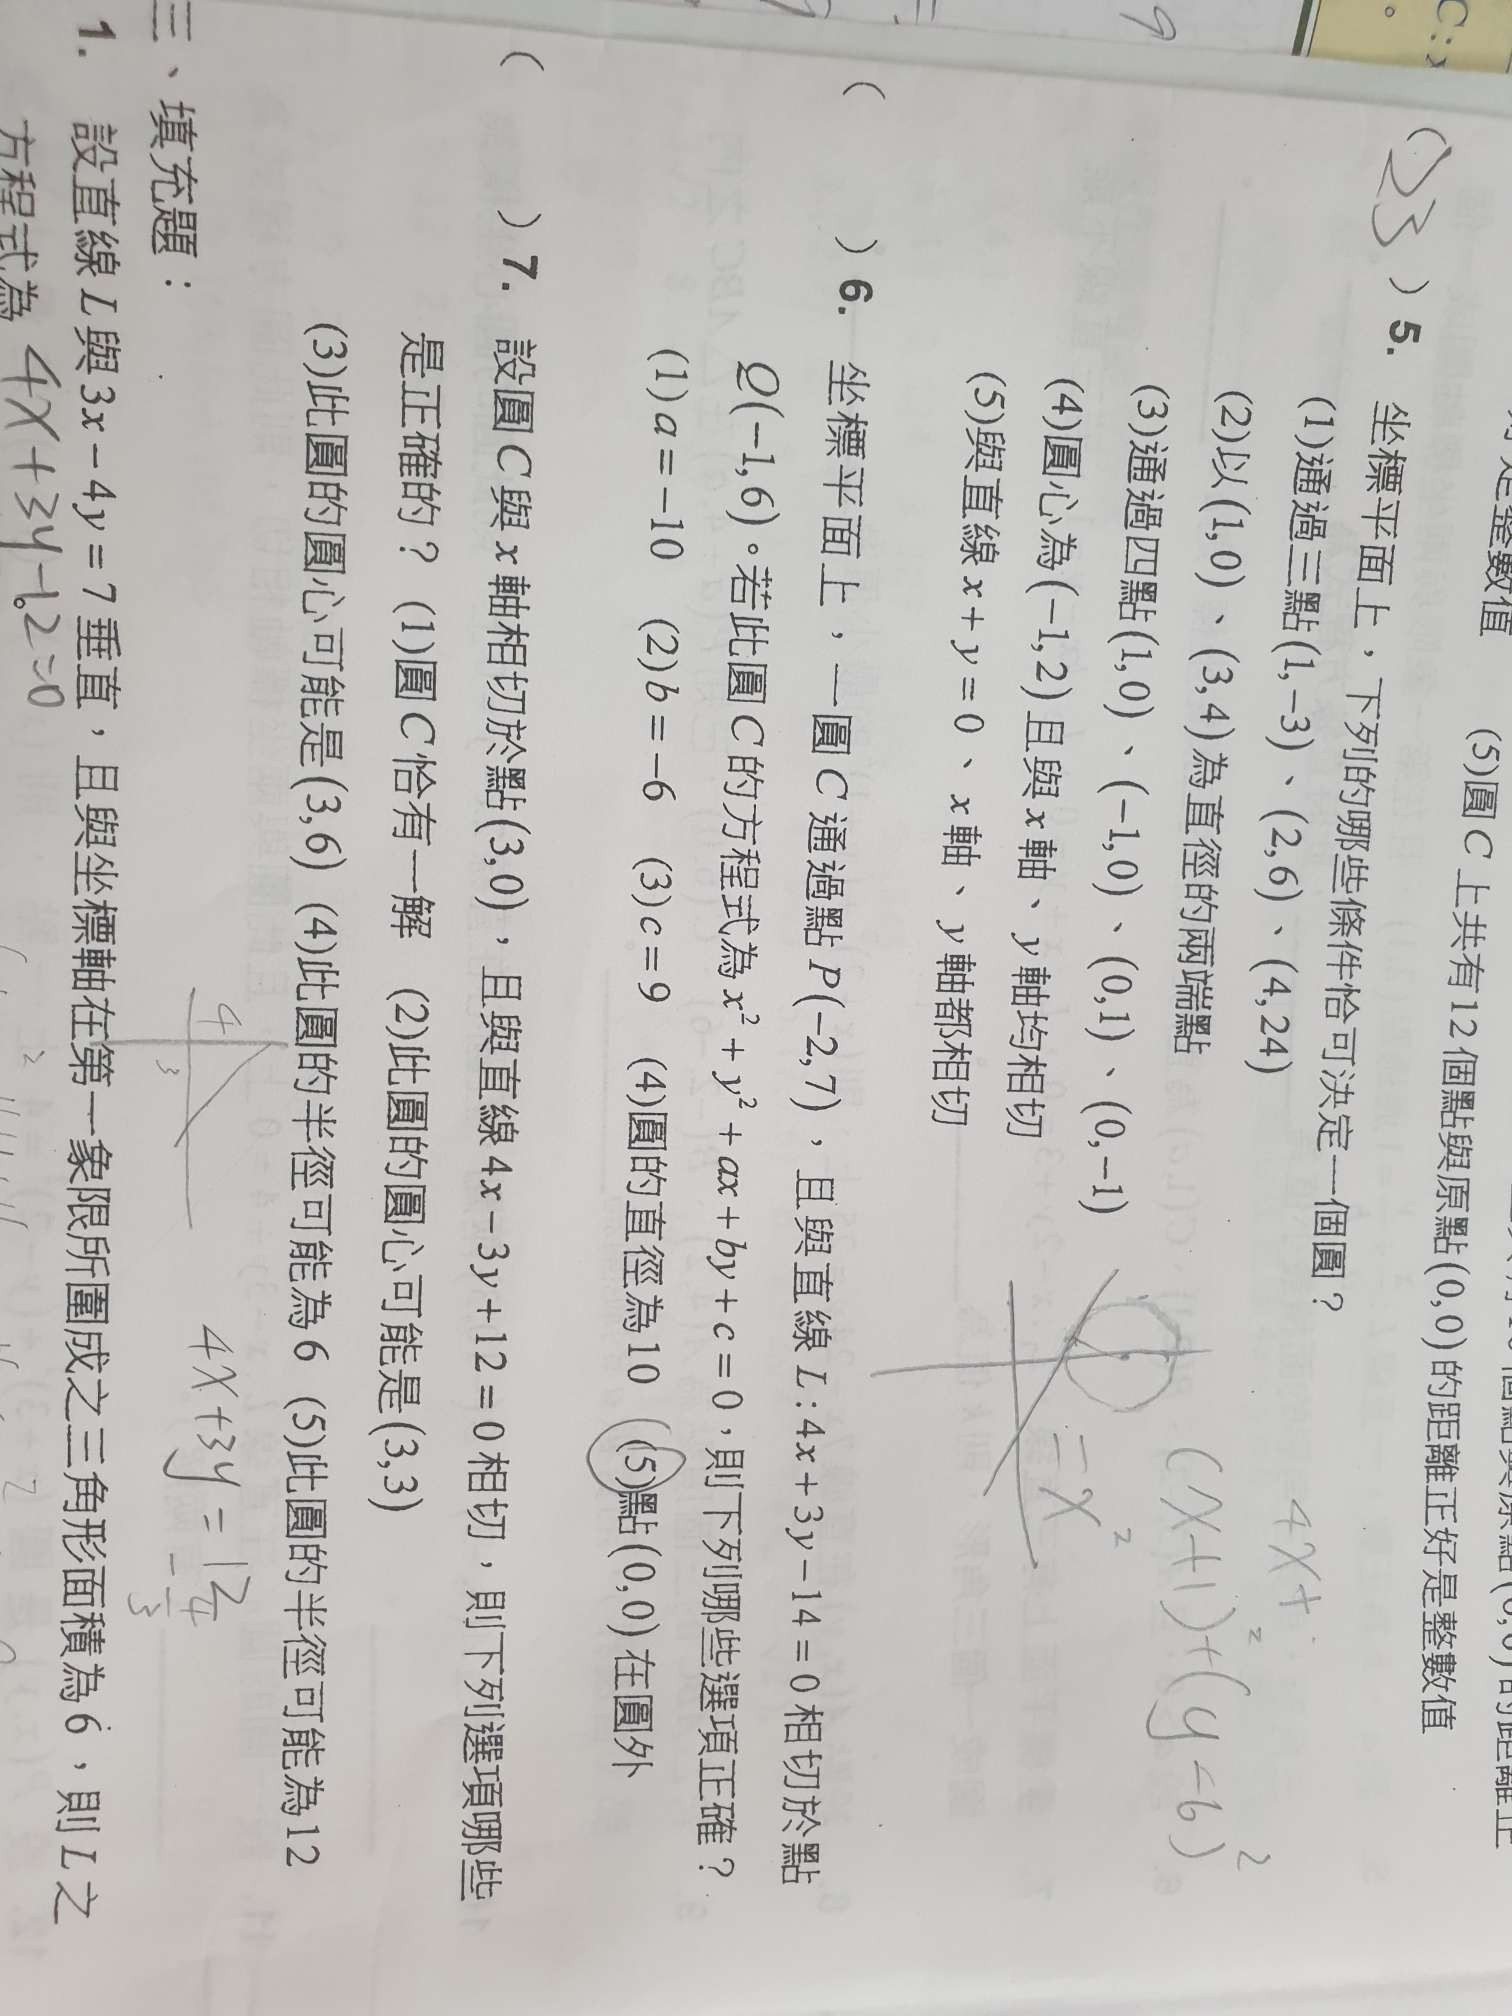 C:x
是整數值 (5)圓C上共有12個點與原點(0,0)的距離正好是整數值
(23) 5. 坐標平面上，下列的哪些條件恰可決定一個圓？
(1)通過三點(1,−3)、(2,6)、(4,24)
(2)以(1,0)、(3,4)為直徑的兩端點
(3)通過四點(1,0)、(−1,0)、(0,1)、(0,−1)
(4)圓心為(−1,2)且與x軸、y軸均相切
(5)與直線x+y=0、x軸、y軸都相切
4x+
(x+1)²+(y−6)²
=x²
( ) 6. 坐標平面上，一圓C通過點P(−2,7)，且與直線L:4x+3y−14=0相切於點
Q(−1,6)。若此圓C的方程式為x²+y²+ax+by+c=0，則下列哪些選項正確？
(1)a=−10 (2)b=−6 (3)c=9 (4)圓的直徑為10 (5)點(0,0)在圓外
( ) 7. 設圓C與x軸相切於點(3,0)，且與直線4x−3y+12=0相切，則下列選項哪些
是正確的？ (1)圓C恰有一解 (2)此圓的圓心可能是(3,3)
(3)此圓的圓心可能是(3,6) (4)此圓的半徑可能為6 (5)此圓的半徑可能為12
4
3
4x+3y=12
三、填充題：
1. 設直線L與3x−4y=7垂直，且與坐標軸在第一象限所圍成之三角形面積為6，則L之
方程式為 4x+3y−12=0